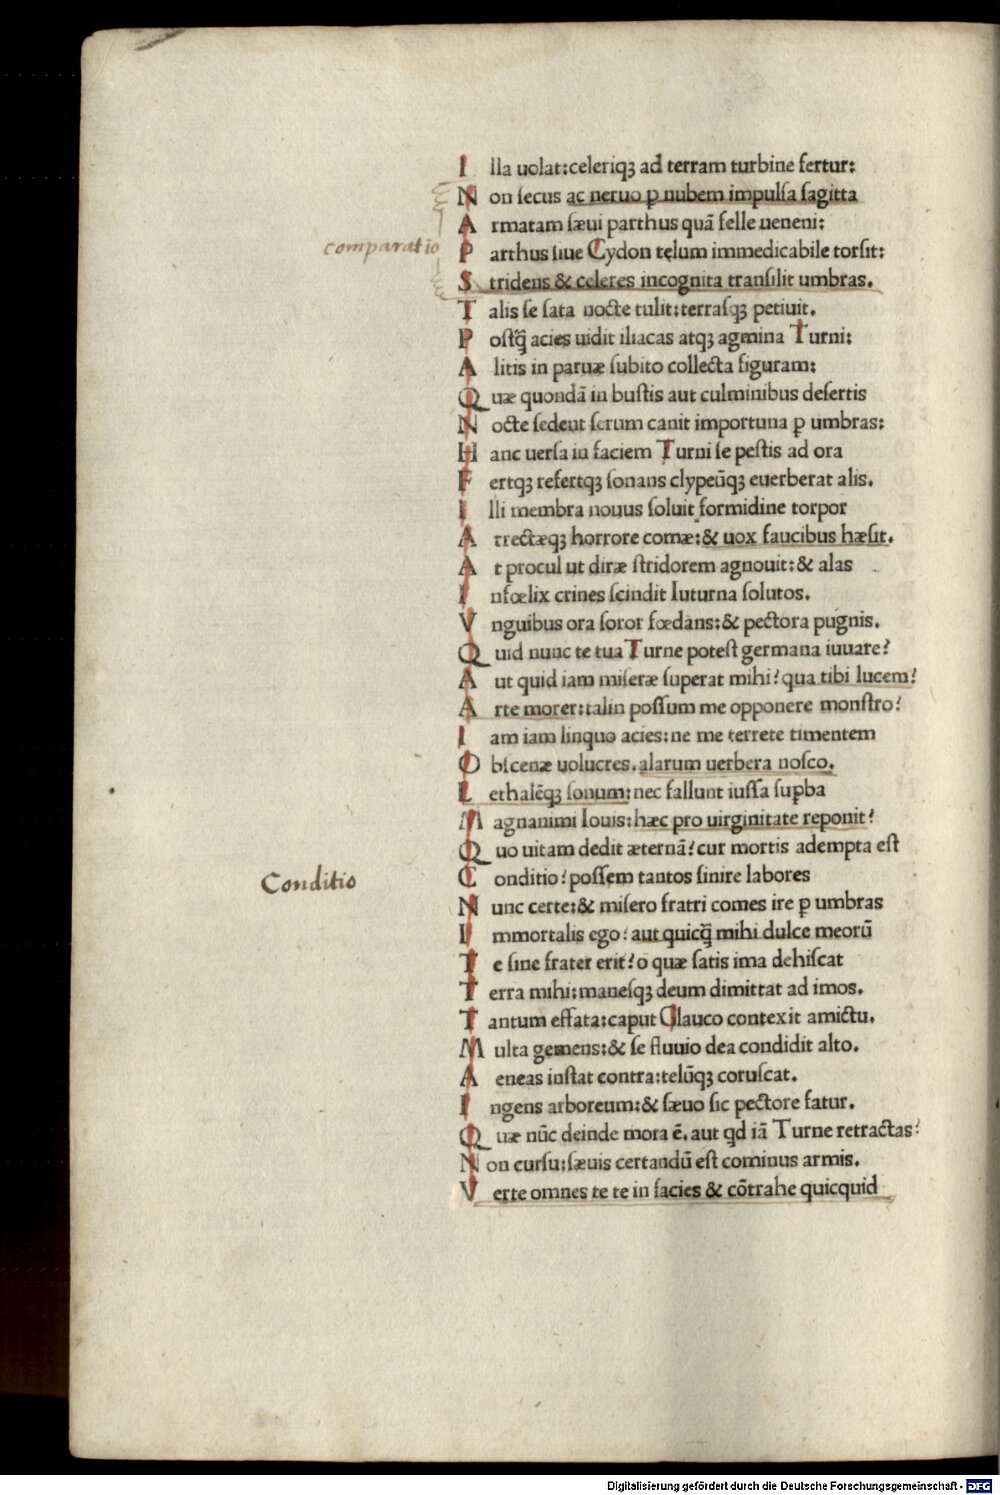 I lla uolat:celeriqꝫ ad terram turbine fertur:
N on secus ac neruo ꝑ nubem impulsa sagitta
A rmatam sæui parthus quā felle ueneni:
comparatio
P arthus siue Cydon tęlum immedicabile torsit:
S tridens & celeres incognita transilit umbras.
T alis se sata nocte tulit:terrasqꝫ petiuit.
P ostq̄ acies uidit iliacas atqꝫ agmina Turni:
A litis in paruæ subito collecta figuram:
Q uæ quondā in bustis aut culminibus desertis
N octe sedent serum canit importuna ꝑ umbras:
H anc uersa in faciem Turni se pestis ad ora
F ertqꝫ refertqꝫ sonans clypeūqꝫ euerberat alis.
I lli membra nouus soluit formidine torpor
A rrectæqꝫ horrore comæ:& uox faucibus hæsit.
A t procul ut diræ stridorem agnouit:& alas
I nfœlix crines scindit Iuturna solutos.
V nguibus ora soror fœdans:& pectora pugnis.
Q uid nunc te tua Turne potest germana iuuare?
A ut quid iam miseræ superat mihi? qua tibi lucem?
A rte morer:talin possum me opponere monstro?
I am iam linquo acies:ne me terrete timentem
O bscenæ uolucres.alarum uerbera nosco.
L ethalēqꝫ sonum:nec fallunt iussa suꝑba
M agnanimi Iouis:hæc pro uirginitate reponit?
Q uo uitam dedit æternā?cur mortis adempta est
Conditio
C onditio?possem tantos finire labores
N unc certe:& misero fratri comes ire ꝑ umbras
I mmortalis ego?aut quicq̄ mihi dulce meorū
T e sine frater erit?o quæ satis ima dehiscat
T erra mihi:manesqꝫ deum dimittat ad imos.
T antum effata:caput Glauco contexit amictu.
M ulta gemens:& se fluuio dea condidit alto.
A eneas instat contra:telūqꝫ coruscat.
I ngens arboreum:& sæuo sic pectore fatur.
Q uæ nūc deinde mora ē.aut qd iā Turne retractas?
N on cursu:sæuis certandū est cominus armis.
V erte omnes te te in facies & cōtrahe quicquid
Digitalisierung gefördert durch die Deutsche Forschungsgemeinschaft - DFG